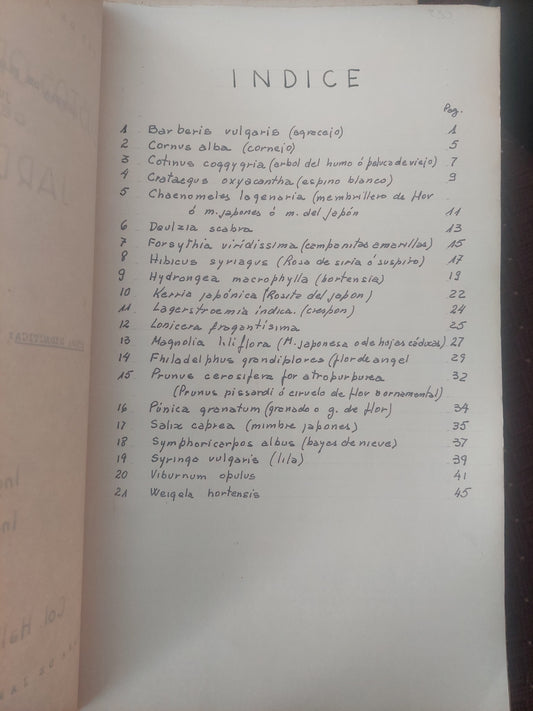 INDICE
Pag.
1 Barberis vulgaris (agracejo) 1
2 Cornus alba (cornejo) 5
3 Cotinus coggygria (arbol del humo ó peluca de viejo) 7
4 Crataegus oxyacantha (espino blanco) 9
5 Chaenomeles lagenaria (membrillero de flor
ó m. japones ó m. del japón 11
6 Deulzia scabra 13
7 Forsythia viridissima (campanitas amarillas) 15
8 Hibicus syriagus (Rosa de siria ó suspiro) 17
9 Hydrongea macrophylla (hortensia) 19
10 Kerria japónica (Rosita del japon) 22
11 Lagerstroemia indica. (crespon) 24
12 Lonicera fragantisima 25
13 Magnolia liliflora (M. japonesa o de hojas cáducas) 27
14 Philadelphus grandiplores (flor de angel 29
15 Prunus cerosifera for atropurpurea 32
(Prunus pissardi ó ciruelo de flor o ornamental)
16 Púnica granatum (granado o g. de flor) 34
17 Salix caprea (mimbre japones) 35
18 Symphoricarpos albus (bayas de nieve) 37
19 Syringa vulgaris (lila) 39
20 Viburnum opulus 41
21 Weigela hortensis 45